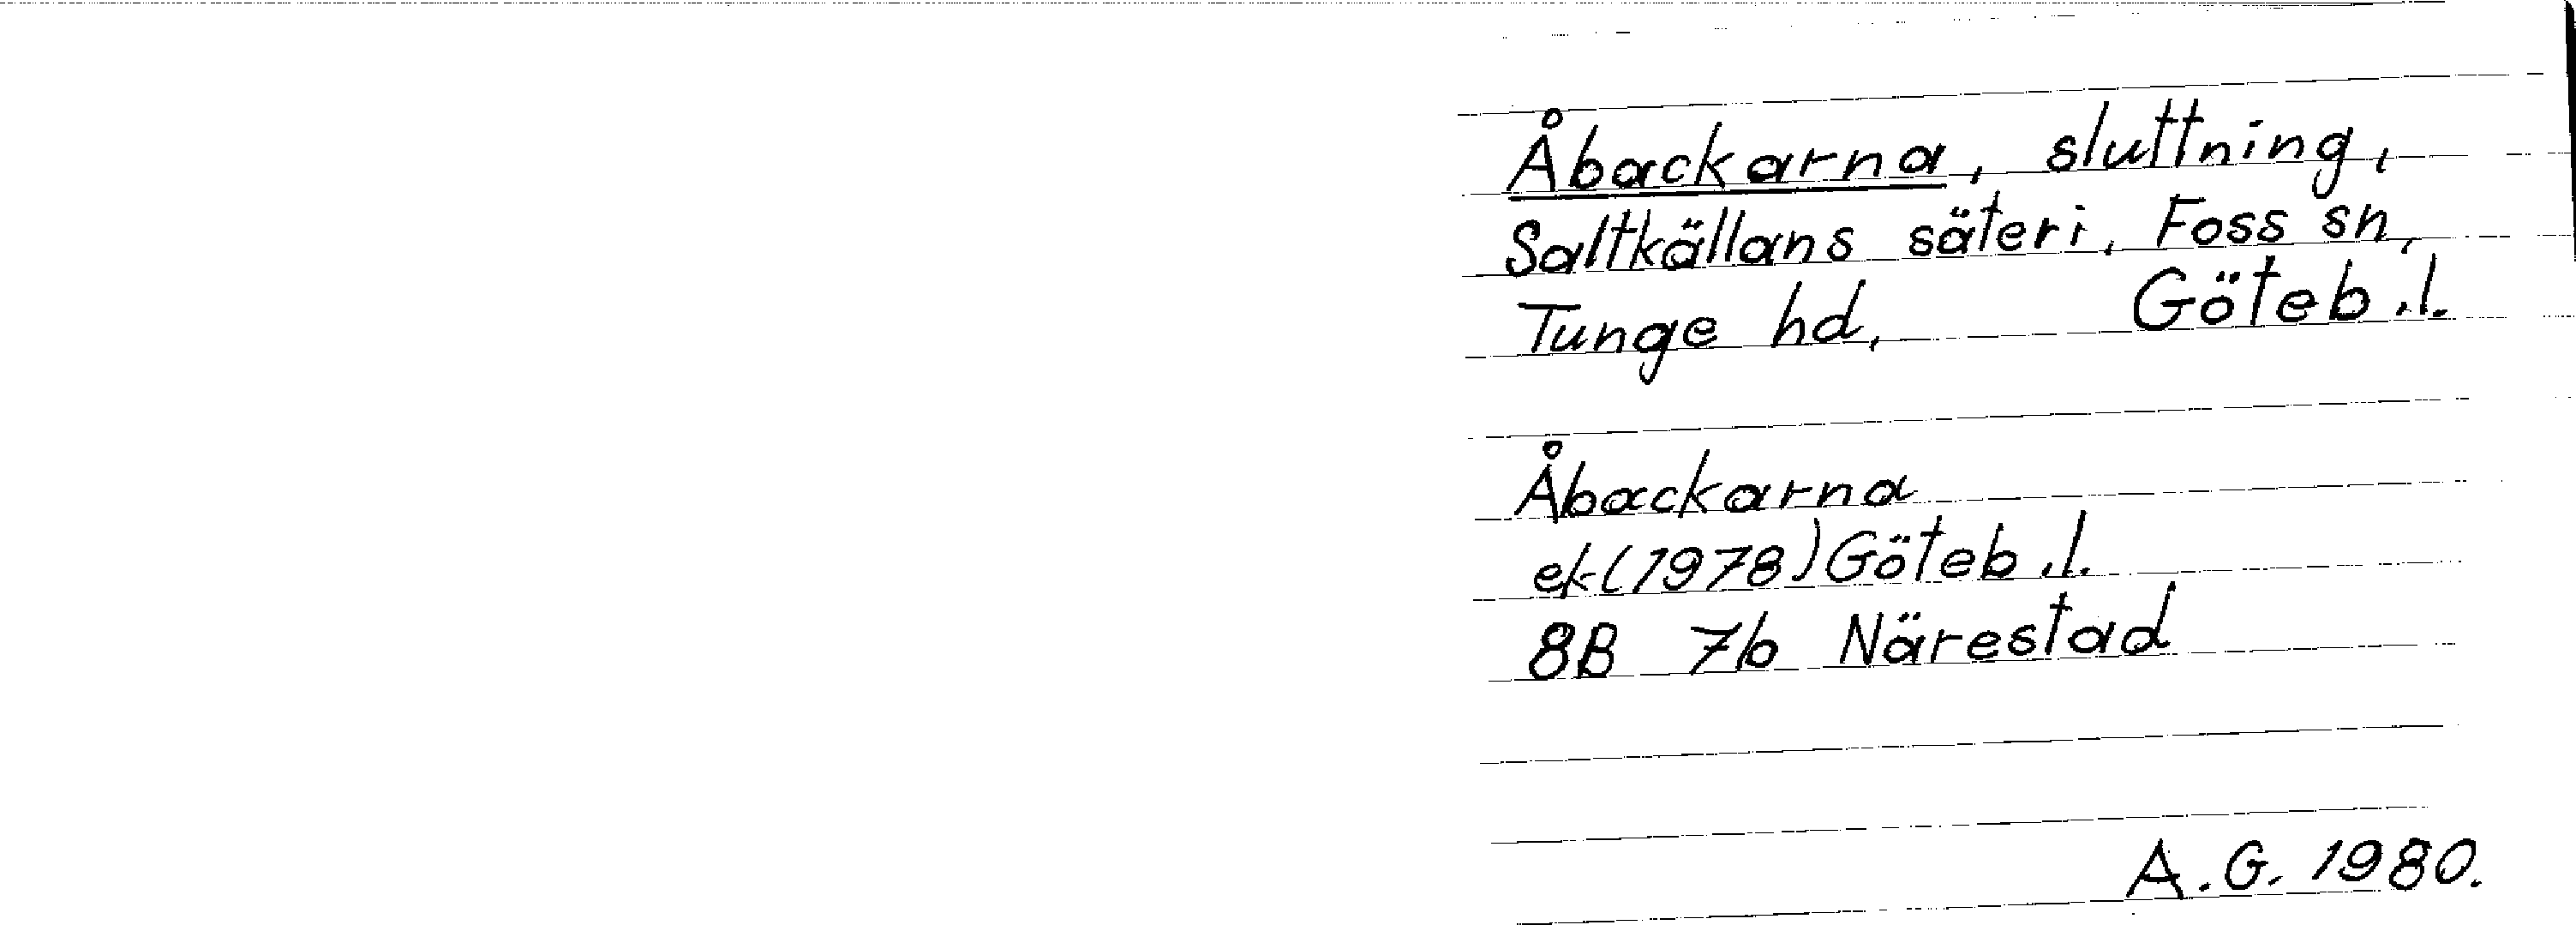 Åbackarna, sluttning,
Saltkällans säteri, Foss sn,
Tunge hd, Göteb.l.
Åbackarna
ek (1978) Göteb.l.
8B 7b Närestad
A.G. 1980.